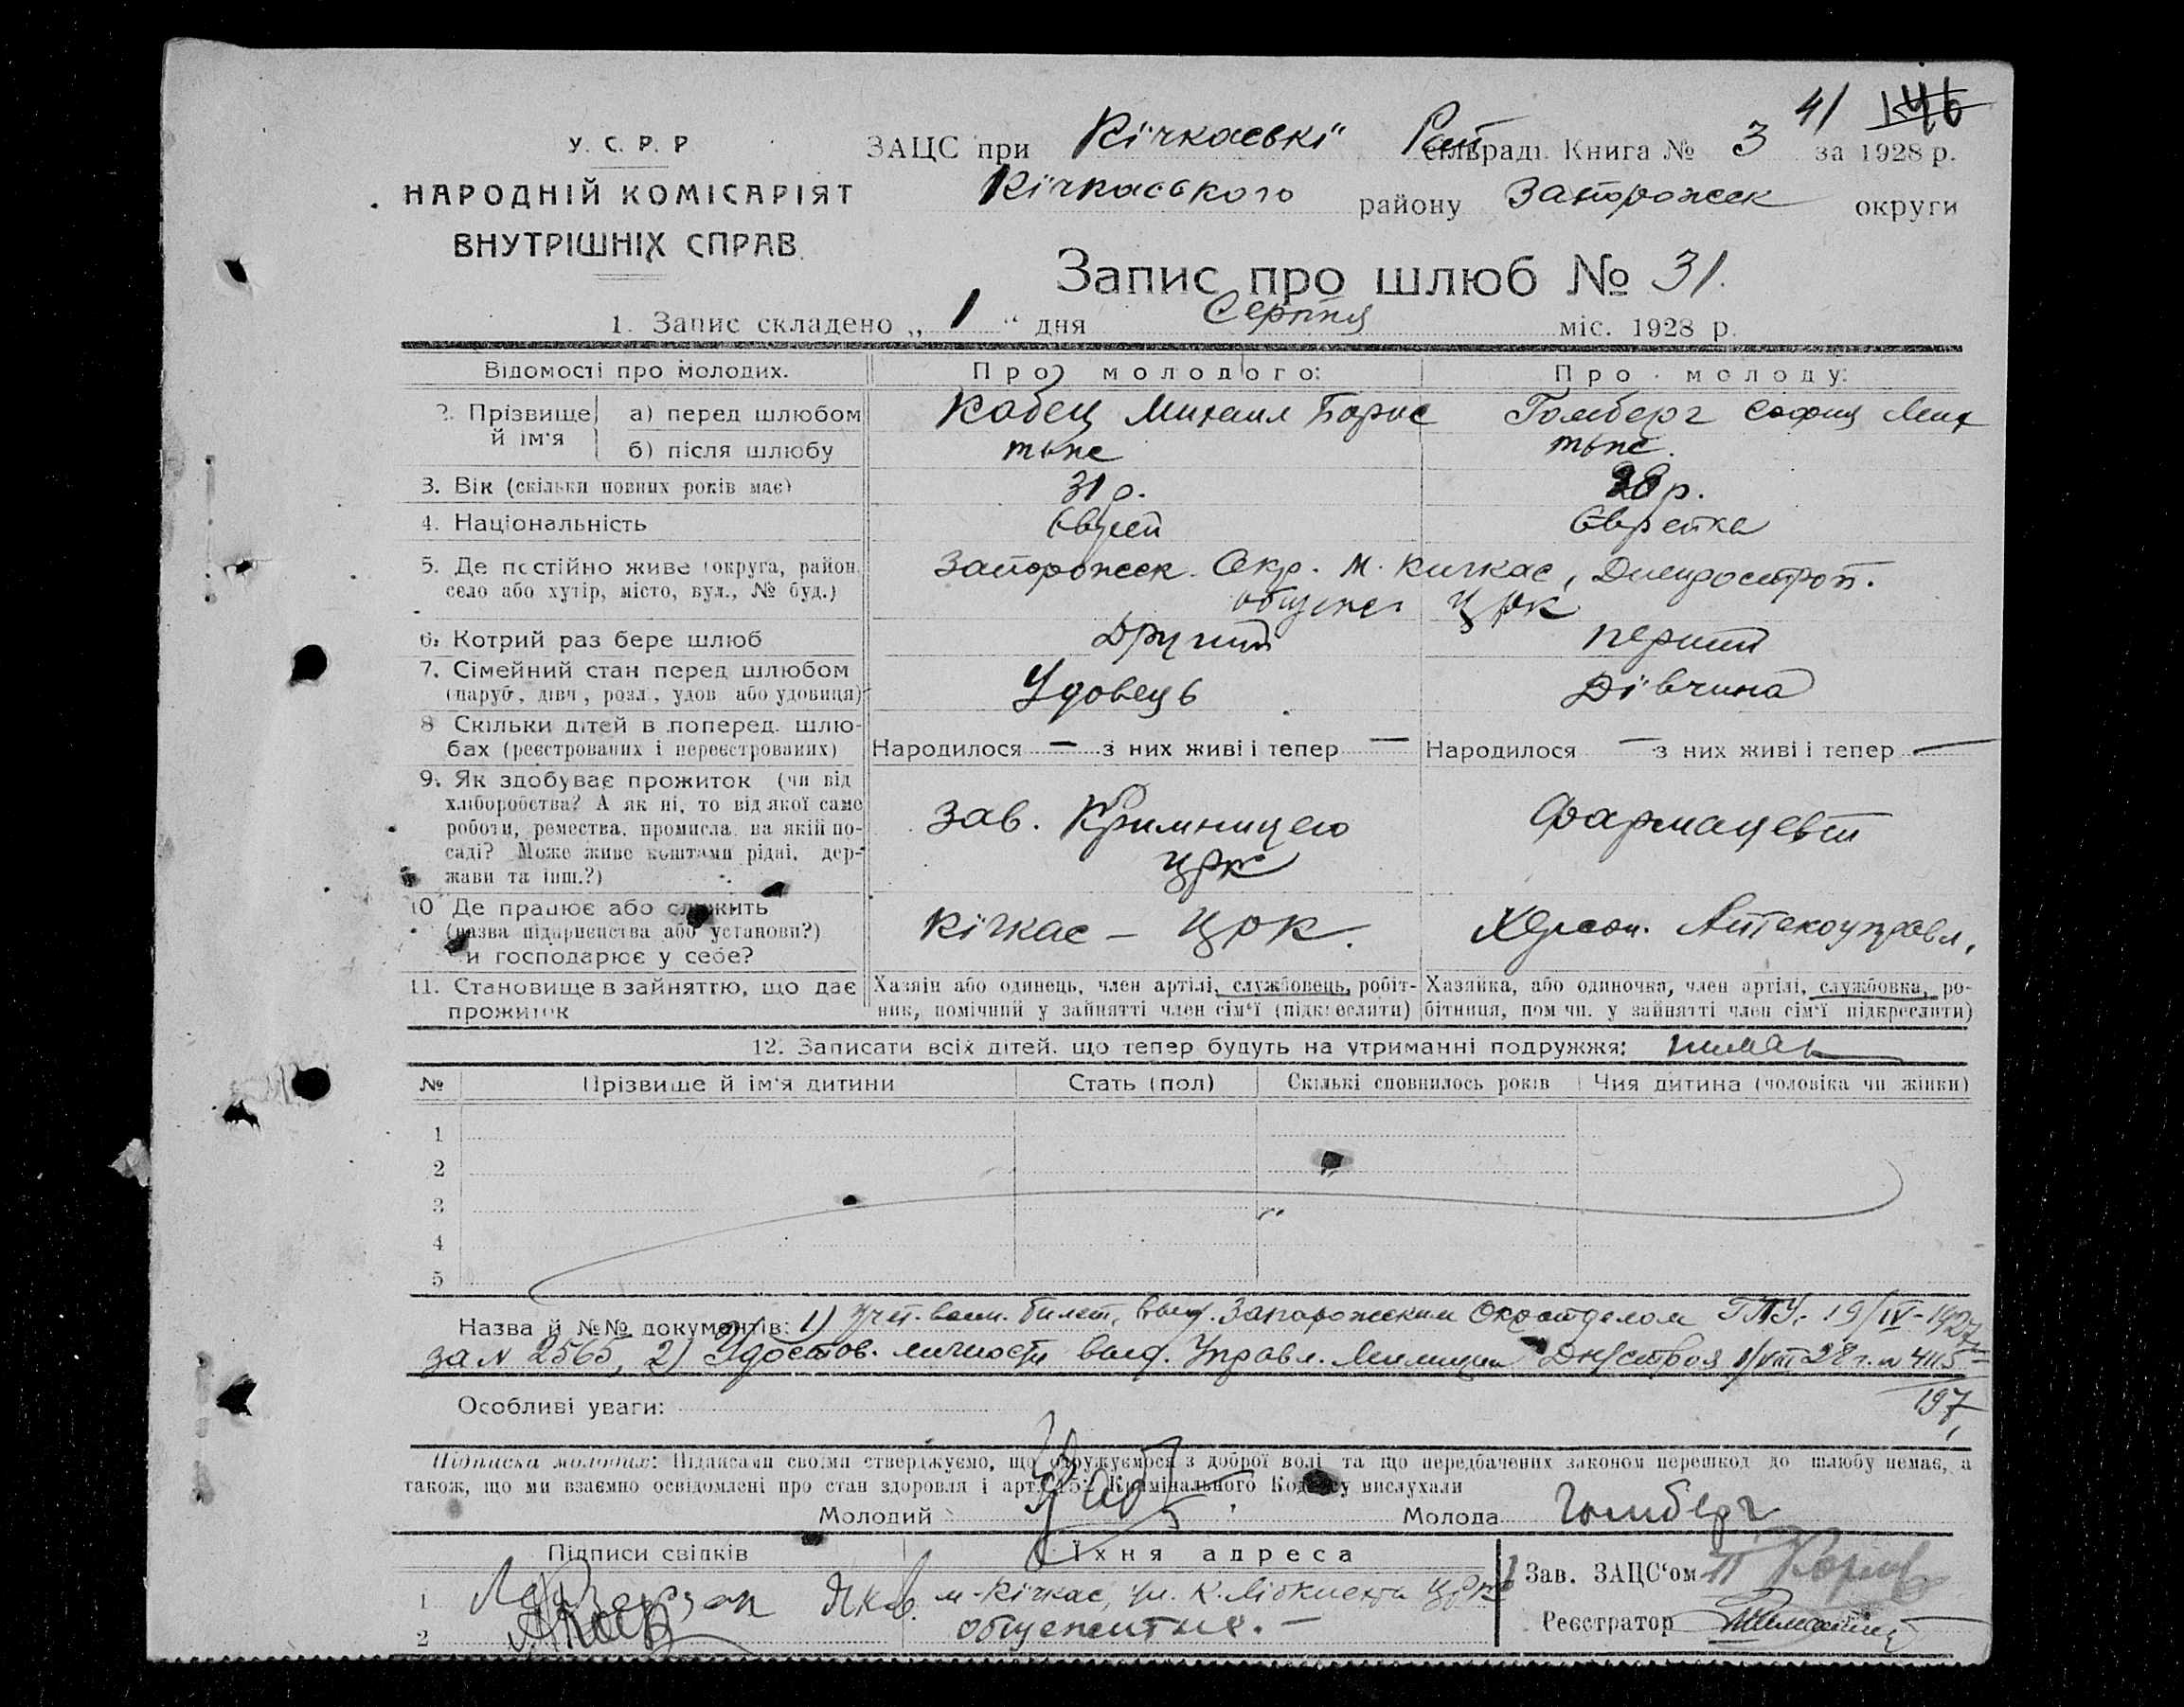 41 146
У. С. Р. Р
НАРОДНІЙ КОМІСАРІЯТ
ВНУТРІШНІХ СПРАВ.
ЗАЦС при Кічкаські Рай сільраді. Книга № 3 за 1928 р.
Кічкаського району Запорожск округи
Запис про шлюб № 31.
1. Запис складено „ 1 “ дня Серпня міс. 1928 р.
Відомості про молодих. Про молодого: Про молоду:
2. Прізвище й ім'я а) перед шлюбом Кабец Михаил Борис Гомберг София Мих
б) після шлюбу тыпе тыпе.
3. Вік (скільки повних років має) 31 р. 28 р.
4. Національність Єврей Єврейка
5. Де постійно живе (округа, район, Запорожск. Окр. м. Кичкас, Днепрострой.
село або хутір, місто, вул., № буд.) общежи ЦРК
6. Котрий раз бере шлюб Другий перший
7. Сімейний стан перед шлюбом Удовець Дівчина
(паруб., дівч., розл., удов або удовиця)
8 Скільки дітей в поперед. шлю-
бах (реєстрованих і нереєстрованих) Народилося — з них живі і тепер — Народилося — з них живі і тепер —
9. Як здобуває прожиток (чи від
хліборобства? А як ні, то від якої саме
роботи, ремества, промисла, на якій по- зав. Крамницею Фармацевт
саді? Може живе коштами рідні, дер- ЦРК
жави та інш.?)
10 Де працює або служить
(назва підприємства або установи?) Кічкас – ЦРК. Херсон. Аптекоуправл.
чи господарює у себе?
11. Становище в зайняттю, що дає Хазяїн або одинець, член артілі, службовець, робіт- Хазяйка, або одиночка, член артілі, службовка, ро-
прожиток ник, помічний у зайнятті член сім'ї (підкреслити) бітниця, пом чн. у зайнятті член сім'ї підкреслити)
12. Записати всіх дітей, що тепер будуть на утриманні подружжя: немає
№ Прізвище й ім'я дитини Стать (пол) Скількі сповнилось років Чия дитина (чоловіка чи жінки)
1
2
3
4
5
Назва й №№ документів: 1) Учет. воин. билет, выд. Запорожским Окротделом ГПУ. 19/IV-1927
за № 2565, 2) Удостов. личности выд. Управл. Милиции Днепростроя 1/VIII 28 г. № 4115
197
Особливі уваги:
Підписка молодих: Підписами своїми стверджуємо, що одружуємося з доброї волі та що передбачених законом перешкод до шлюбу немає, а
також, що ми взаємно освідомлені про стан здоровля і арт. 152 Кримінального Кодексу вислухали
Молодий Молода Гомберг
Підписи свідків Їхня адреса
1 Яков. м-Кічкас, ул. К. Лібкнехта ЦРК Зав. ЗАЦС'ом
2 общежитие. – Реєстратор